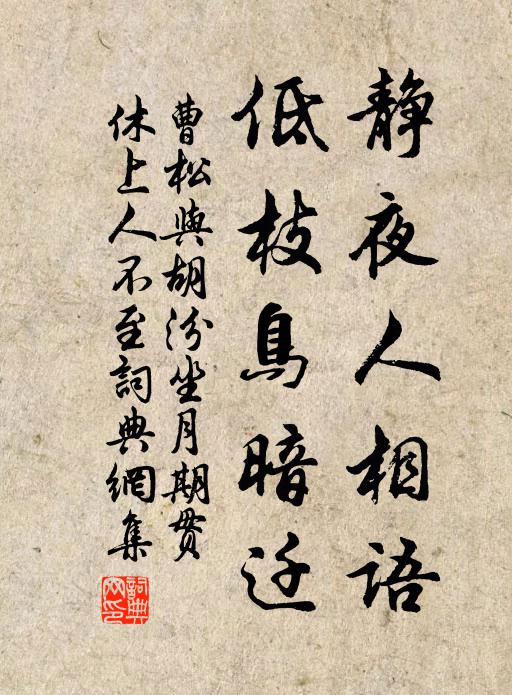 静夜人相语
低枝鳥暗迁
曹松與胡汾坐月期贯
休上人不至詞典網集
詞典
网印